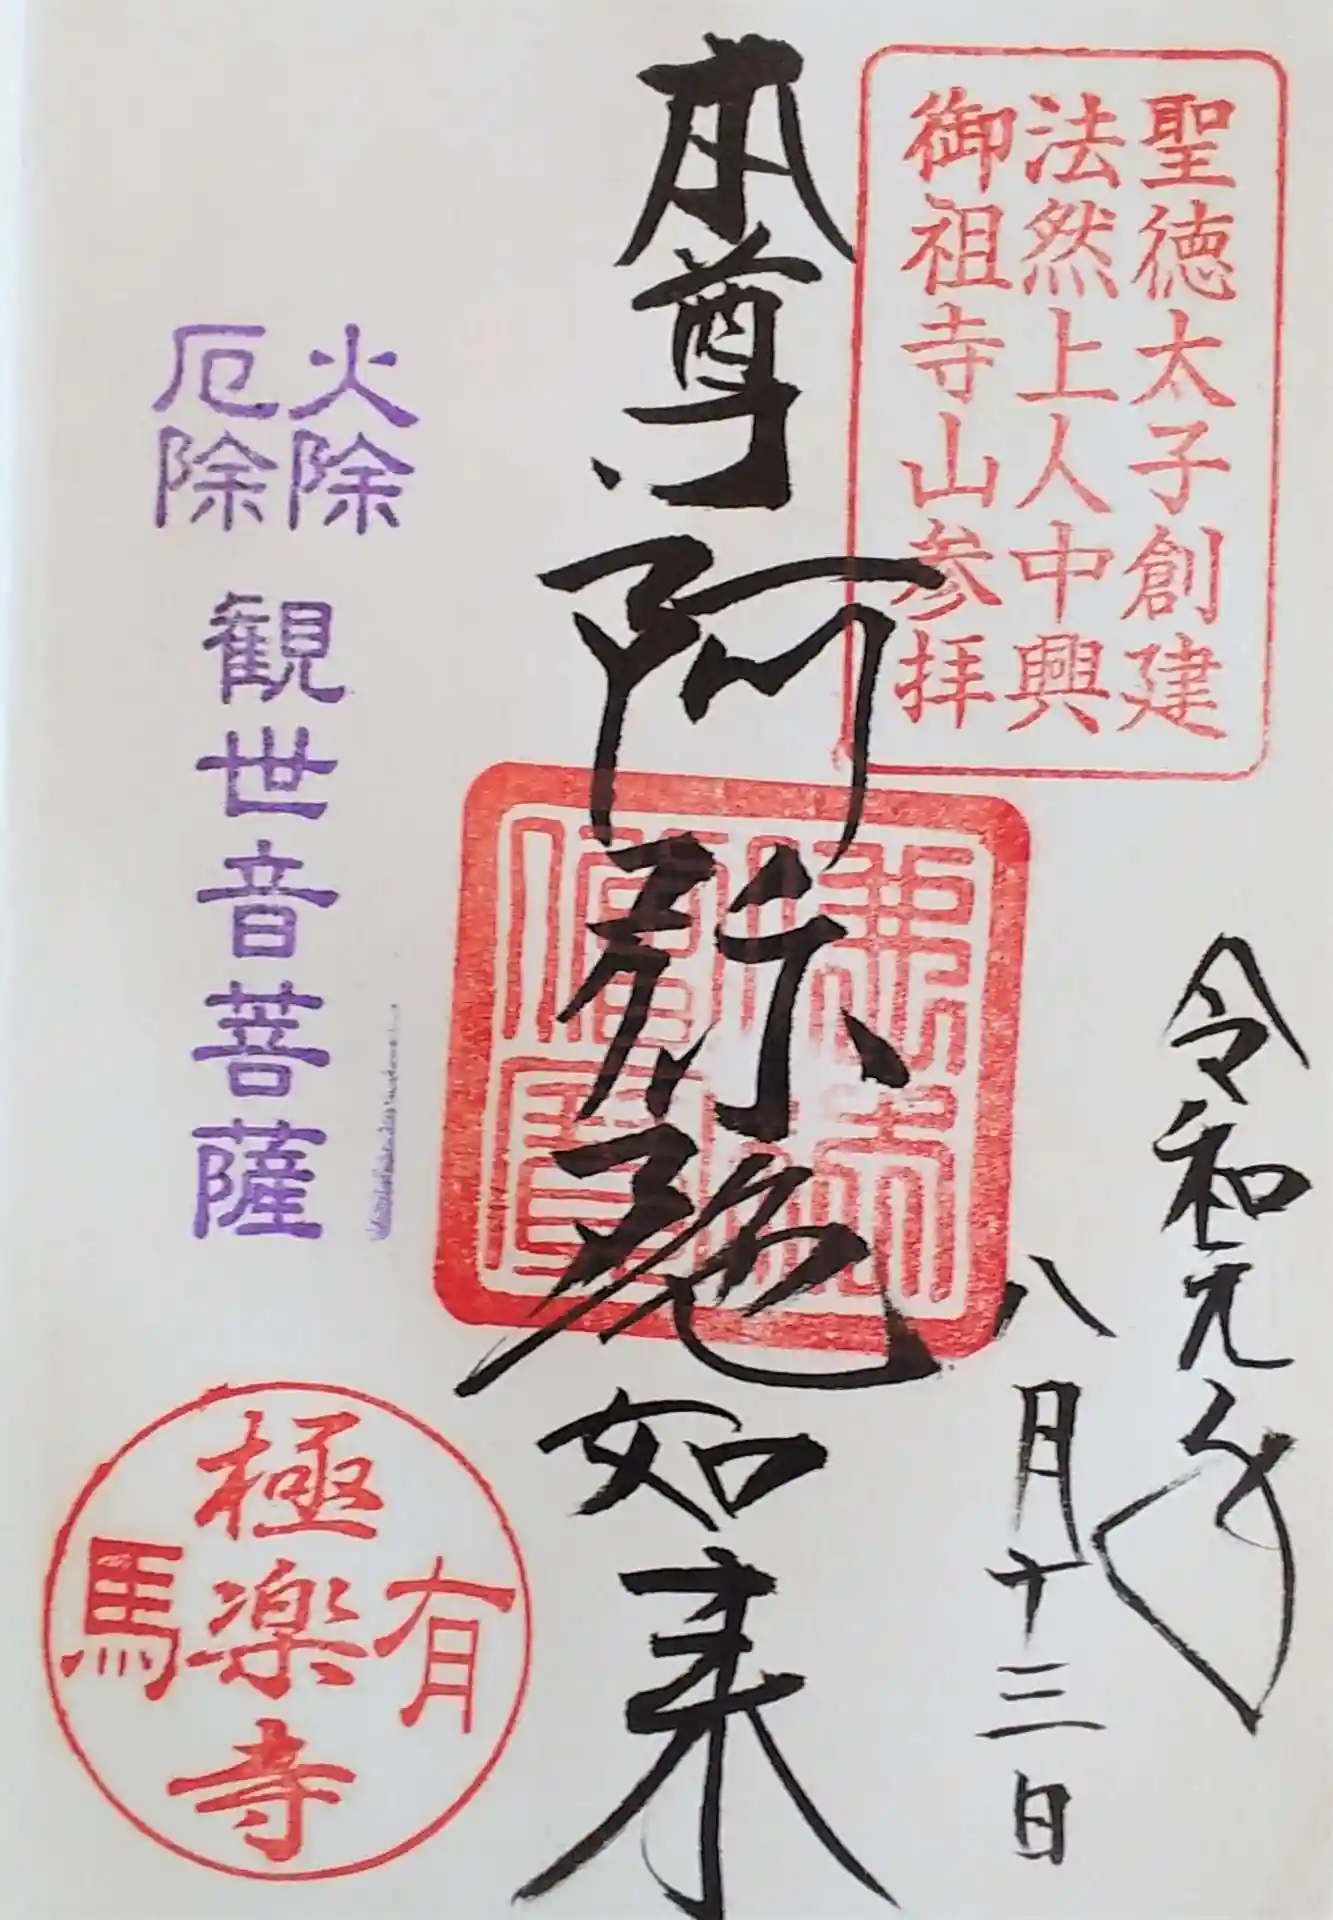 聖徳太子創建
法然上人中興
御祖寺山参拝
令和元年
八月十三日
本尊阿弥陀如来
火除
厄除
観世音菩薩
有馬
極楽寺